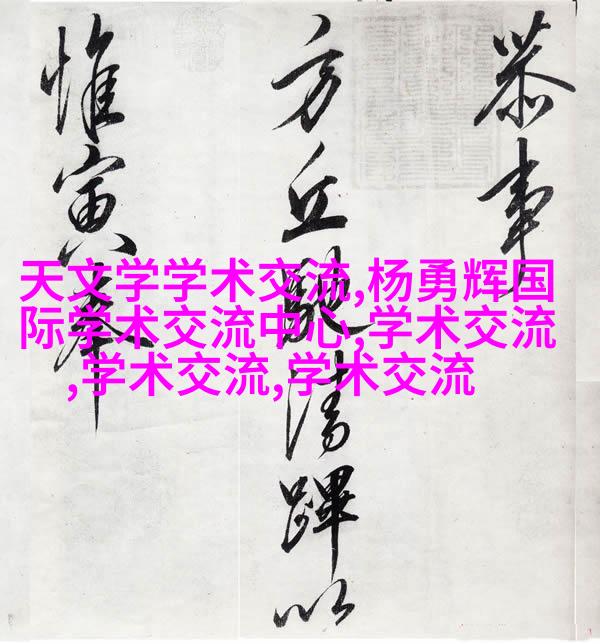 恭事
方丘馳清蹕以
惟寅奉
天文学学术交流,杨勇辉国
际学术交流中心,学术交流
,学术交流,学术交流